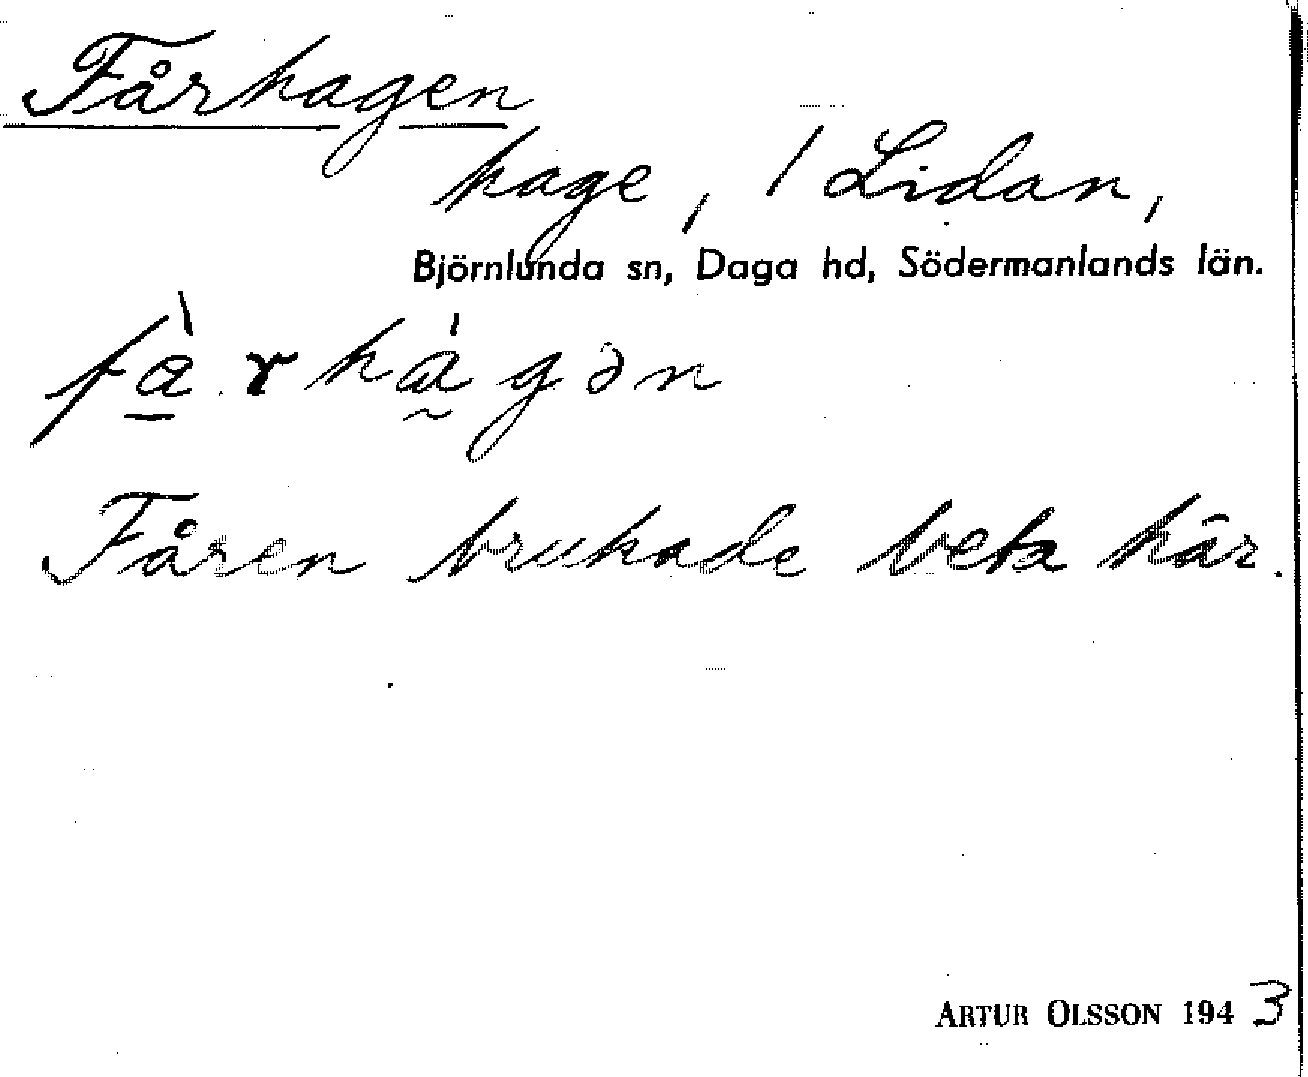 Fårhagen
hage, 1 Lidan,
Björnlunda sn, Daga hd, Södermanlands län.
fà̱rhá̰gən
Fåren brukade beta här.
ARTUR OLSSON 1943